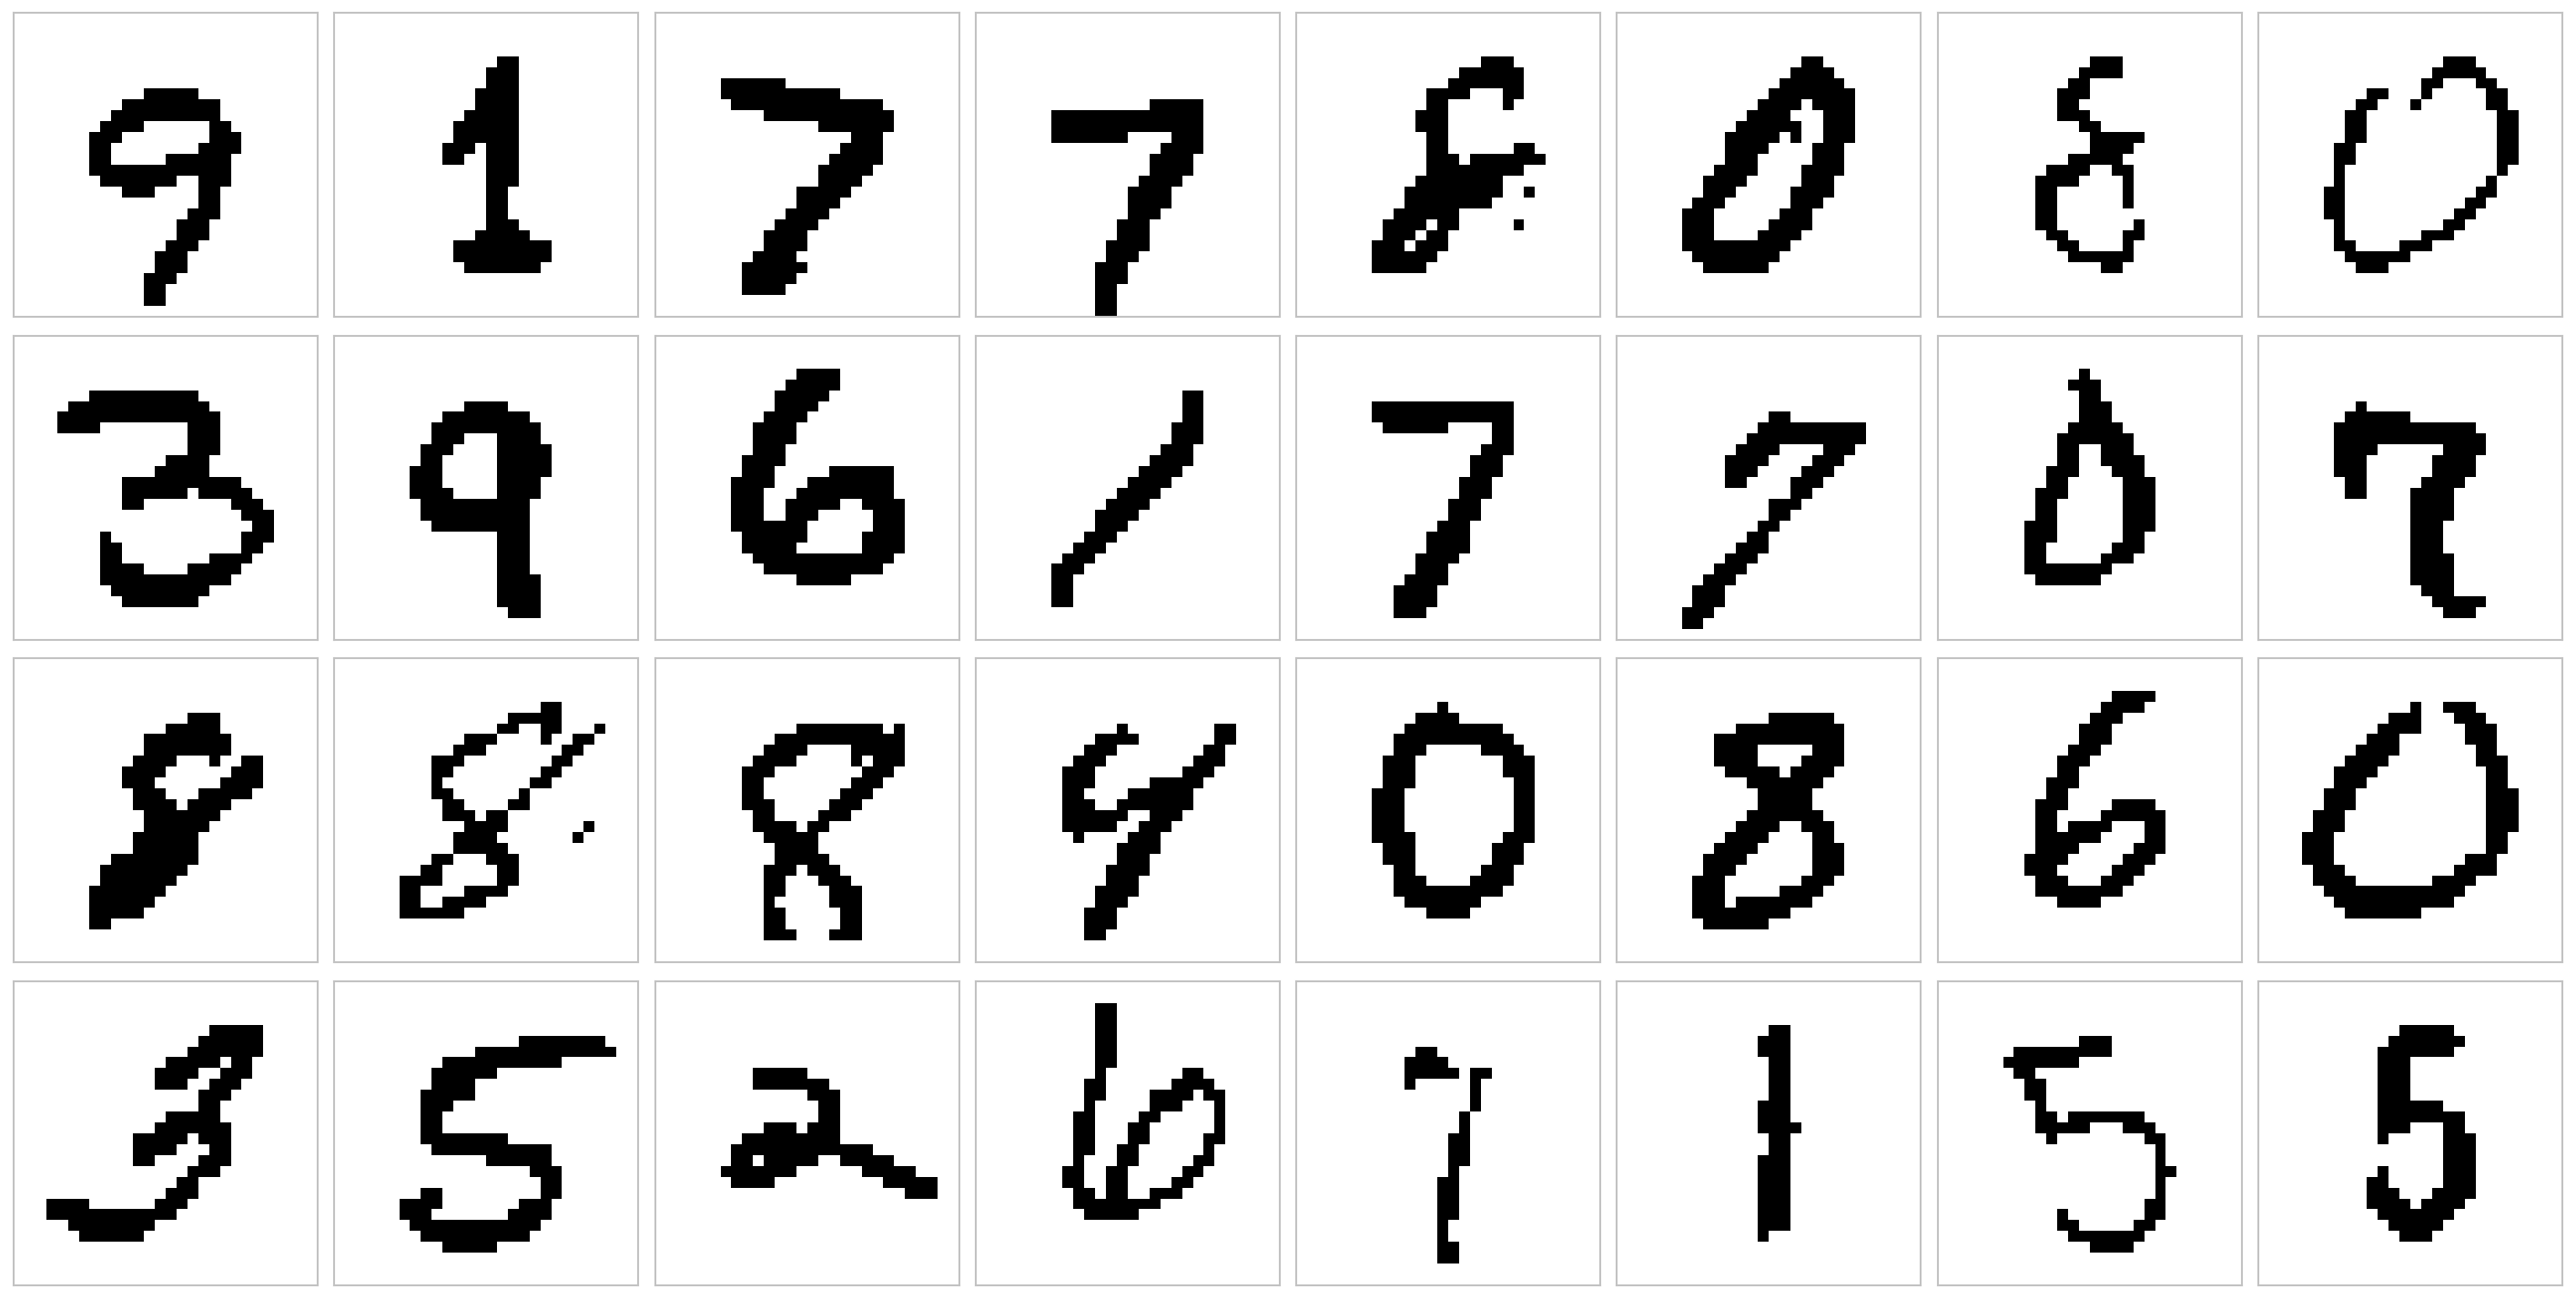 9 1 7 7 8 0 8 0
3 9 6 1 7 7 0 7
8 8 8 4 0 8 6 0
3 5 2 6 7 1 5 5